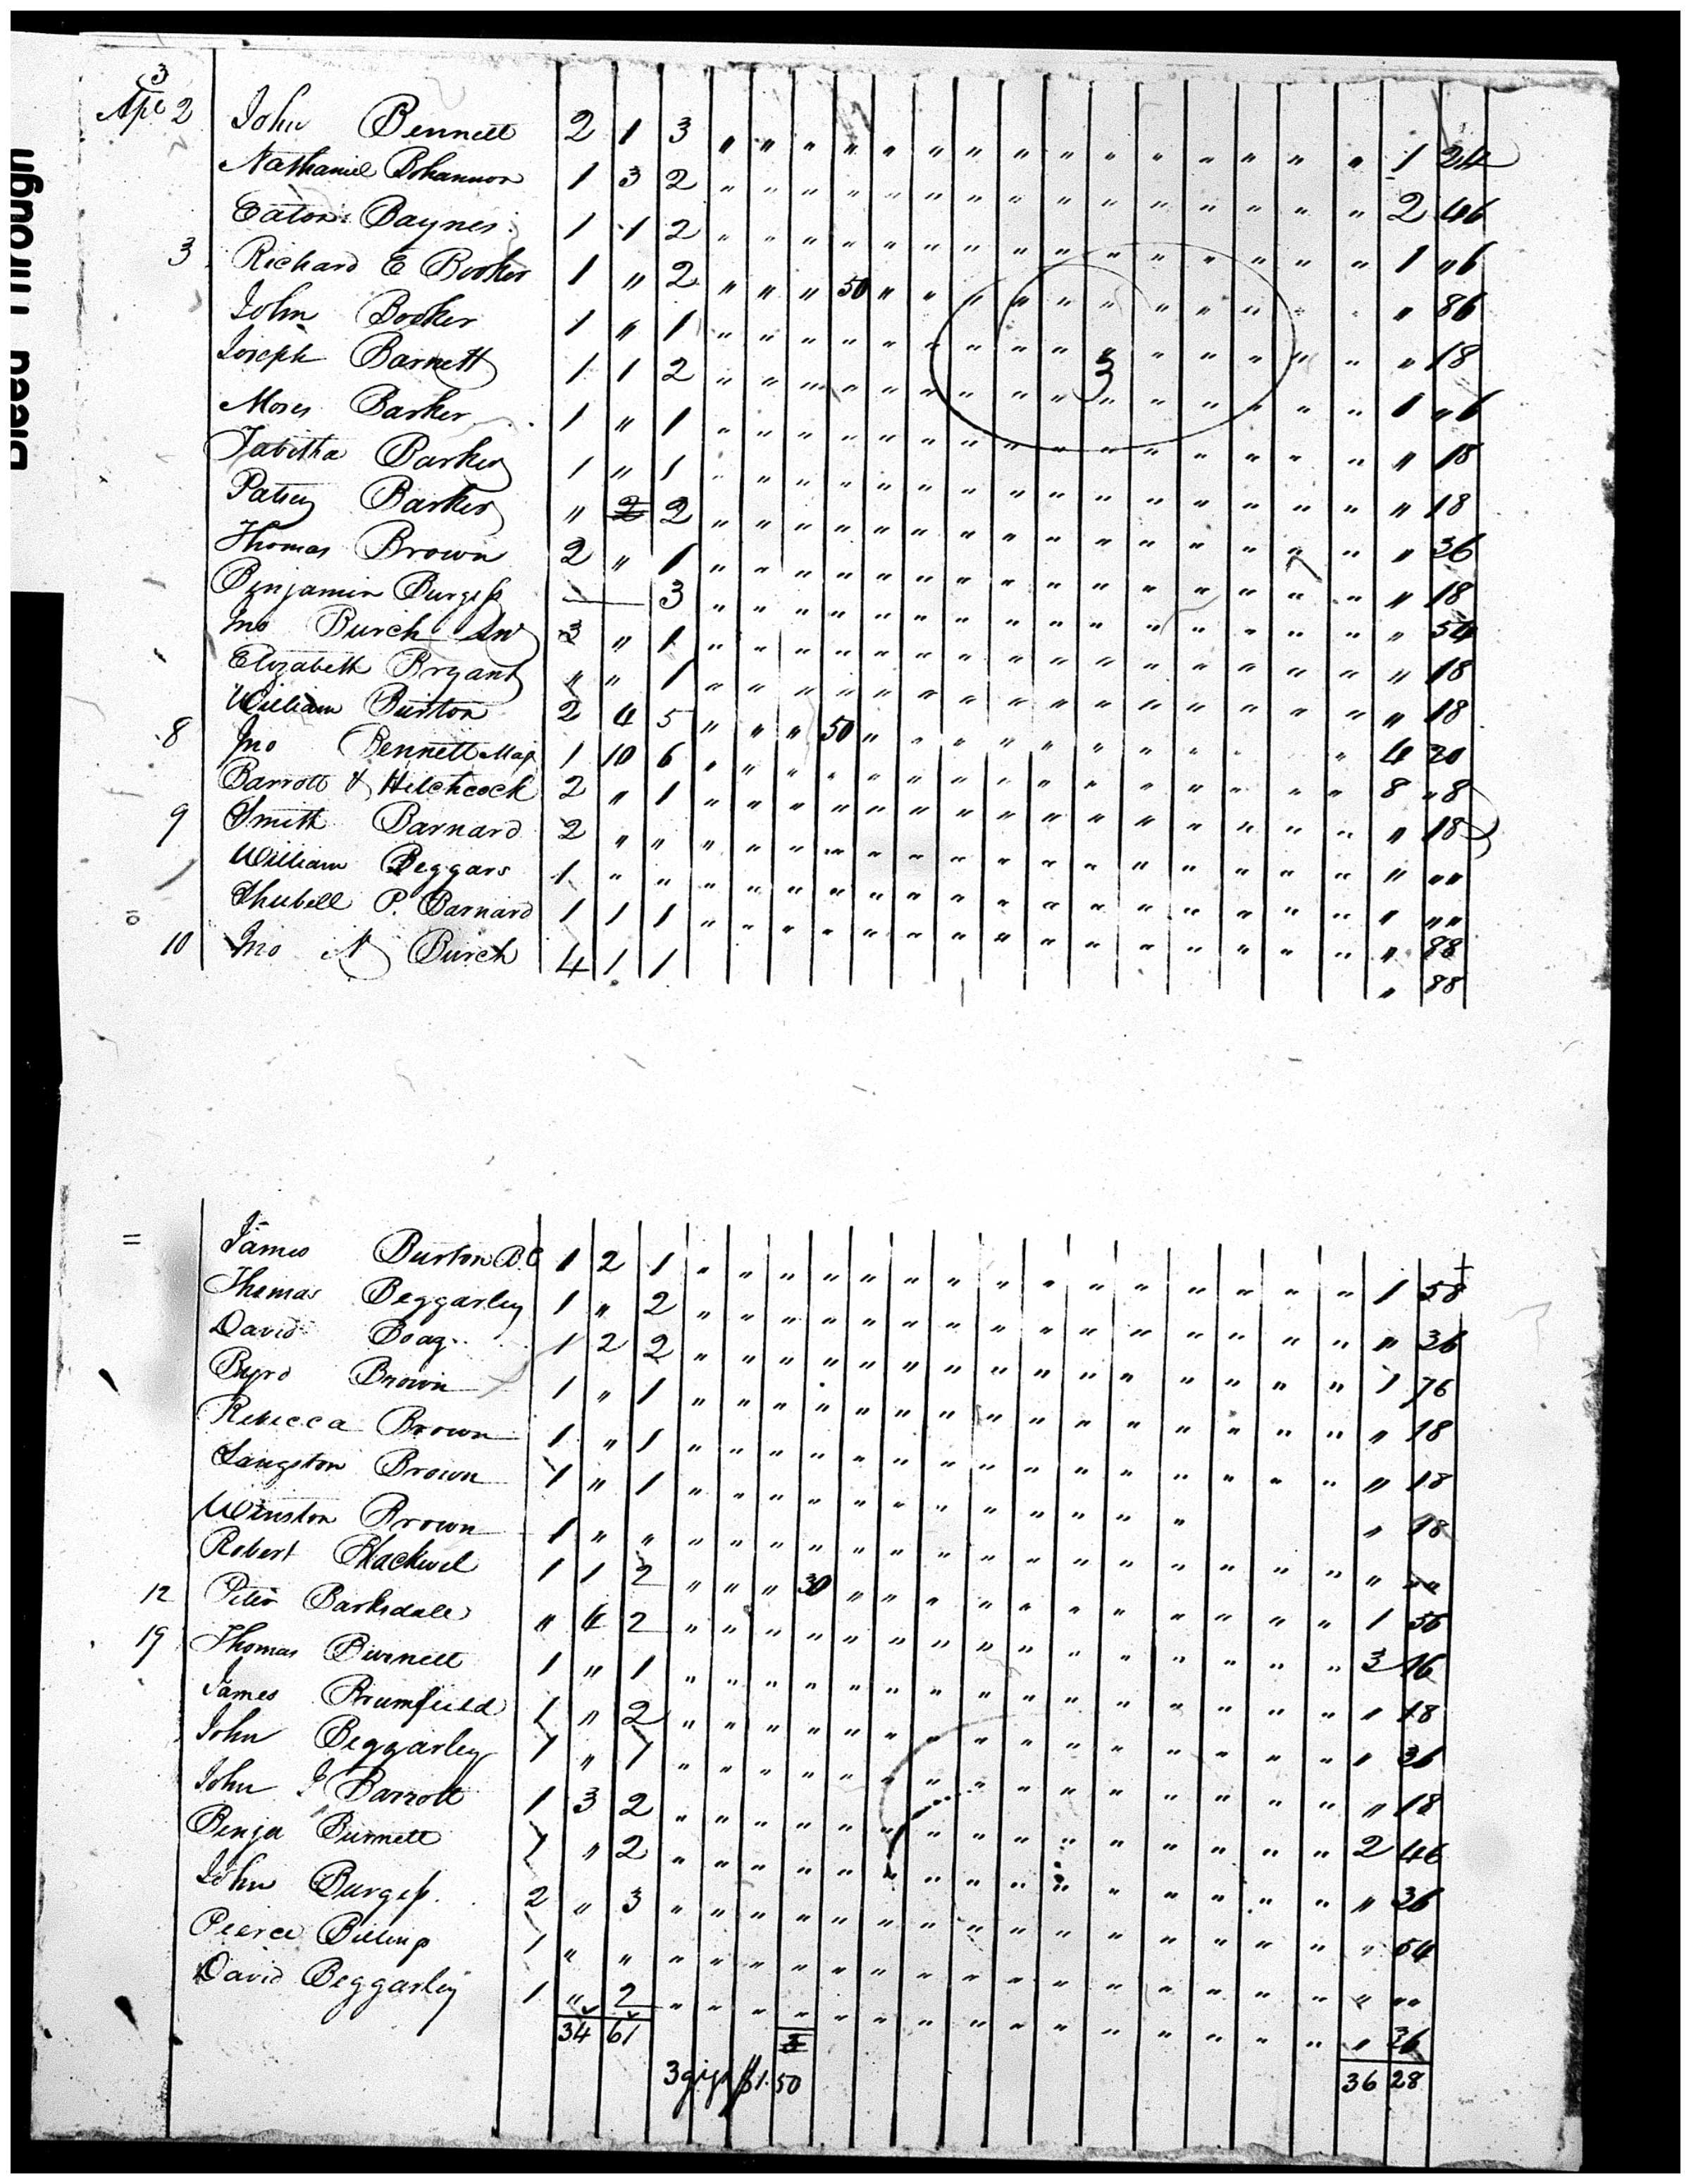 3
Apl 2 John Bennett 2 1 3 " " " " " " " " " " " " " " " 1 24
Nathaniel Bohannon 1 3 2 " " " " " " " " " " " " " " " 2 46
Eaton Baynes 1 1 2 " " " " " " " " " " " " " " " 1 "6
3 Richard E Booker 1 " 2 " " " 50 " " " " " " " " " " " " 86
John Booker 1 " 1 " " " " " " " " " " " " " " " " 18
Joseph Barnett 1 1 2 " " " " " " " " " " " " " " " 1 "6
3
Moses Barker 1 " 1 " " " " " " " " " " " " " " " " 18
Tabitha Barker 1 " 1 " " " " " " " " " " " " " " " " 18
Patsey Barker " 2 2 " " " " " " " " " " " " " " " " 36
Thomas Brown 2 " 1 " " " " " " " " " " " " " " " " 18
Benjamin Burgess — 3 " " " " " " " " " " " " " " " " 54
Jno Burch Snr 3 " 1 " " " " " " " " " " " " " " " " 18
Elizabeth Bryant " " 1 " " " " " " " " " " " " " " " " 18
William Burton 2 4 5 " " " 50 " " " " " " " " " " " 4 20
8 Jno Bennett Maj 1 10 6 " " " " " " " " " " " " " " " 8 "8
Barrott & Hitchcock 2 " 1 " " " " " " " " " " " " " " " " 18
9 Smith Barnard 2 " " " " " " " " " " " " " " " " " " ""
William Beggars 1 " " " " " " " " " " " " " " " " " " ""
Shubell P. Barnard 1 1 1 " " " " " " " " " " " " " " " " 88
10 Jno N Burch 4 1 1 " 88
James Burton B.C 1 2 1 " " " " " " " " " " " " " " " 1 58
Thomas Beggarley 1 " 2 " " " " " " " " " " " " " " " " 36
David Boaz 1 2 2 " " " " " " " " " " " " " " " 1 76
Byrd Brown 1 " 1 " " " " " " " " " " " " " " " " 18
Rebecca Brown 1 " 1 " " " " " " " " " " " " " " " " 18
Langston Brown 1 " 1 " " " " " " " " " " " " " 18
Winston Brown 1 " " " " " " " " " " " " " " " " " " ""
Robert Blackwel 1 1 2 " " " 30 " " " " " " " " " " " 1 56
12 Peter Barksdale " 4 2 " " " " " " " " " " " " " " " 3 16
19 Thomas Burnett 1 " 1 " " " " " " " " " " " " " " " " 18
James Brumfield 1 " 2 " " " " " " " " " " " " " " " " 36
John Beggarley 1 " 1 " " " " " " " " " " " " " " " " 18
John J Barrott 1 3 2 " " " " " " " " " " " " " " " 2 46
Benja Burnett 1 " 2 " " " " " " " " " " " " " " " " 36
John Burgess 2 " 3 " " " " " " " " " " " " " " " " 54
Peerce Billings 1 " " " " " " " " " " " " " " " " " " ""
David Beggarley 1 " 2 " " " " " " " " " " " " " " " " 36
34 61 3 36 28
3 gigs $1.50